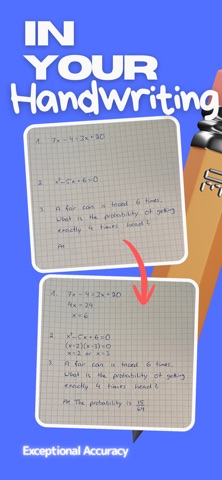 IN
YOUR
Handwriting
1. 7x - 4 = 3x + 20
2. x² - 5x + 6 = 0
3. A fair coin is tossed 6 times.
What is the probability of getting
exactly 4 times head?
A:
1. 7x - 4 = 3x + 20
4x = 24
x = 6
2. x² - 5x + 6 = 0
(x-2)(x-3) = 0
x = 2 or x = 3
3. A fair coin is tossed 6 times.
What is the probability of getting
exactly 4 times head?
A: The probability is 15/64
Exceptional Accuracy